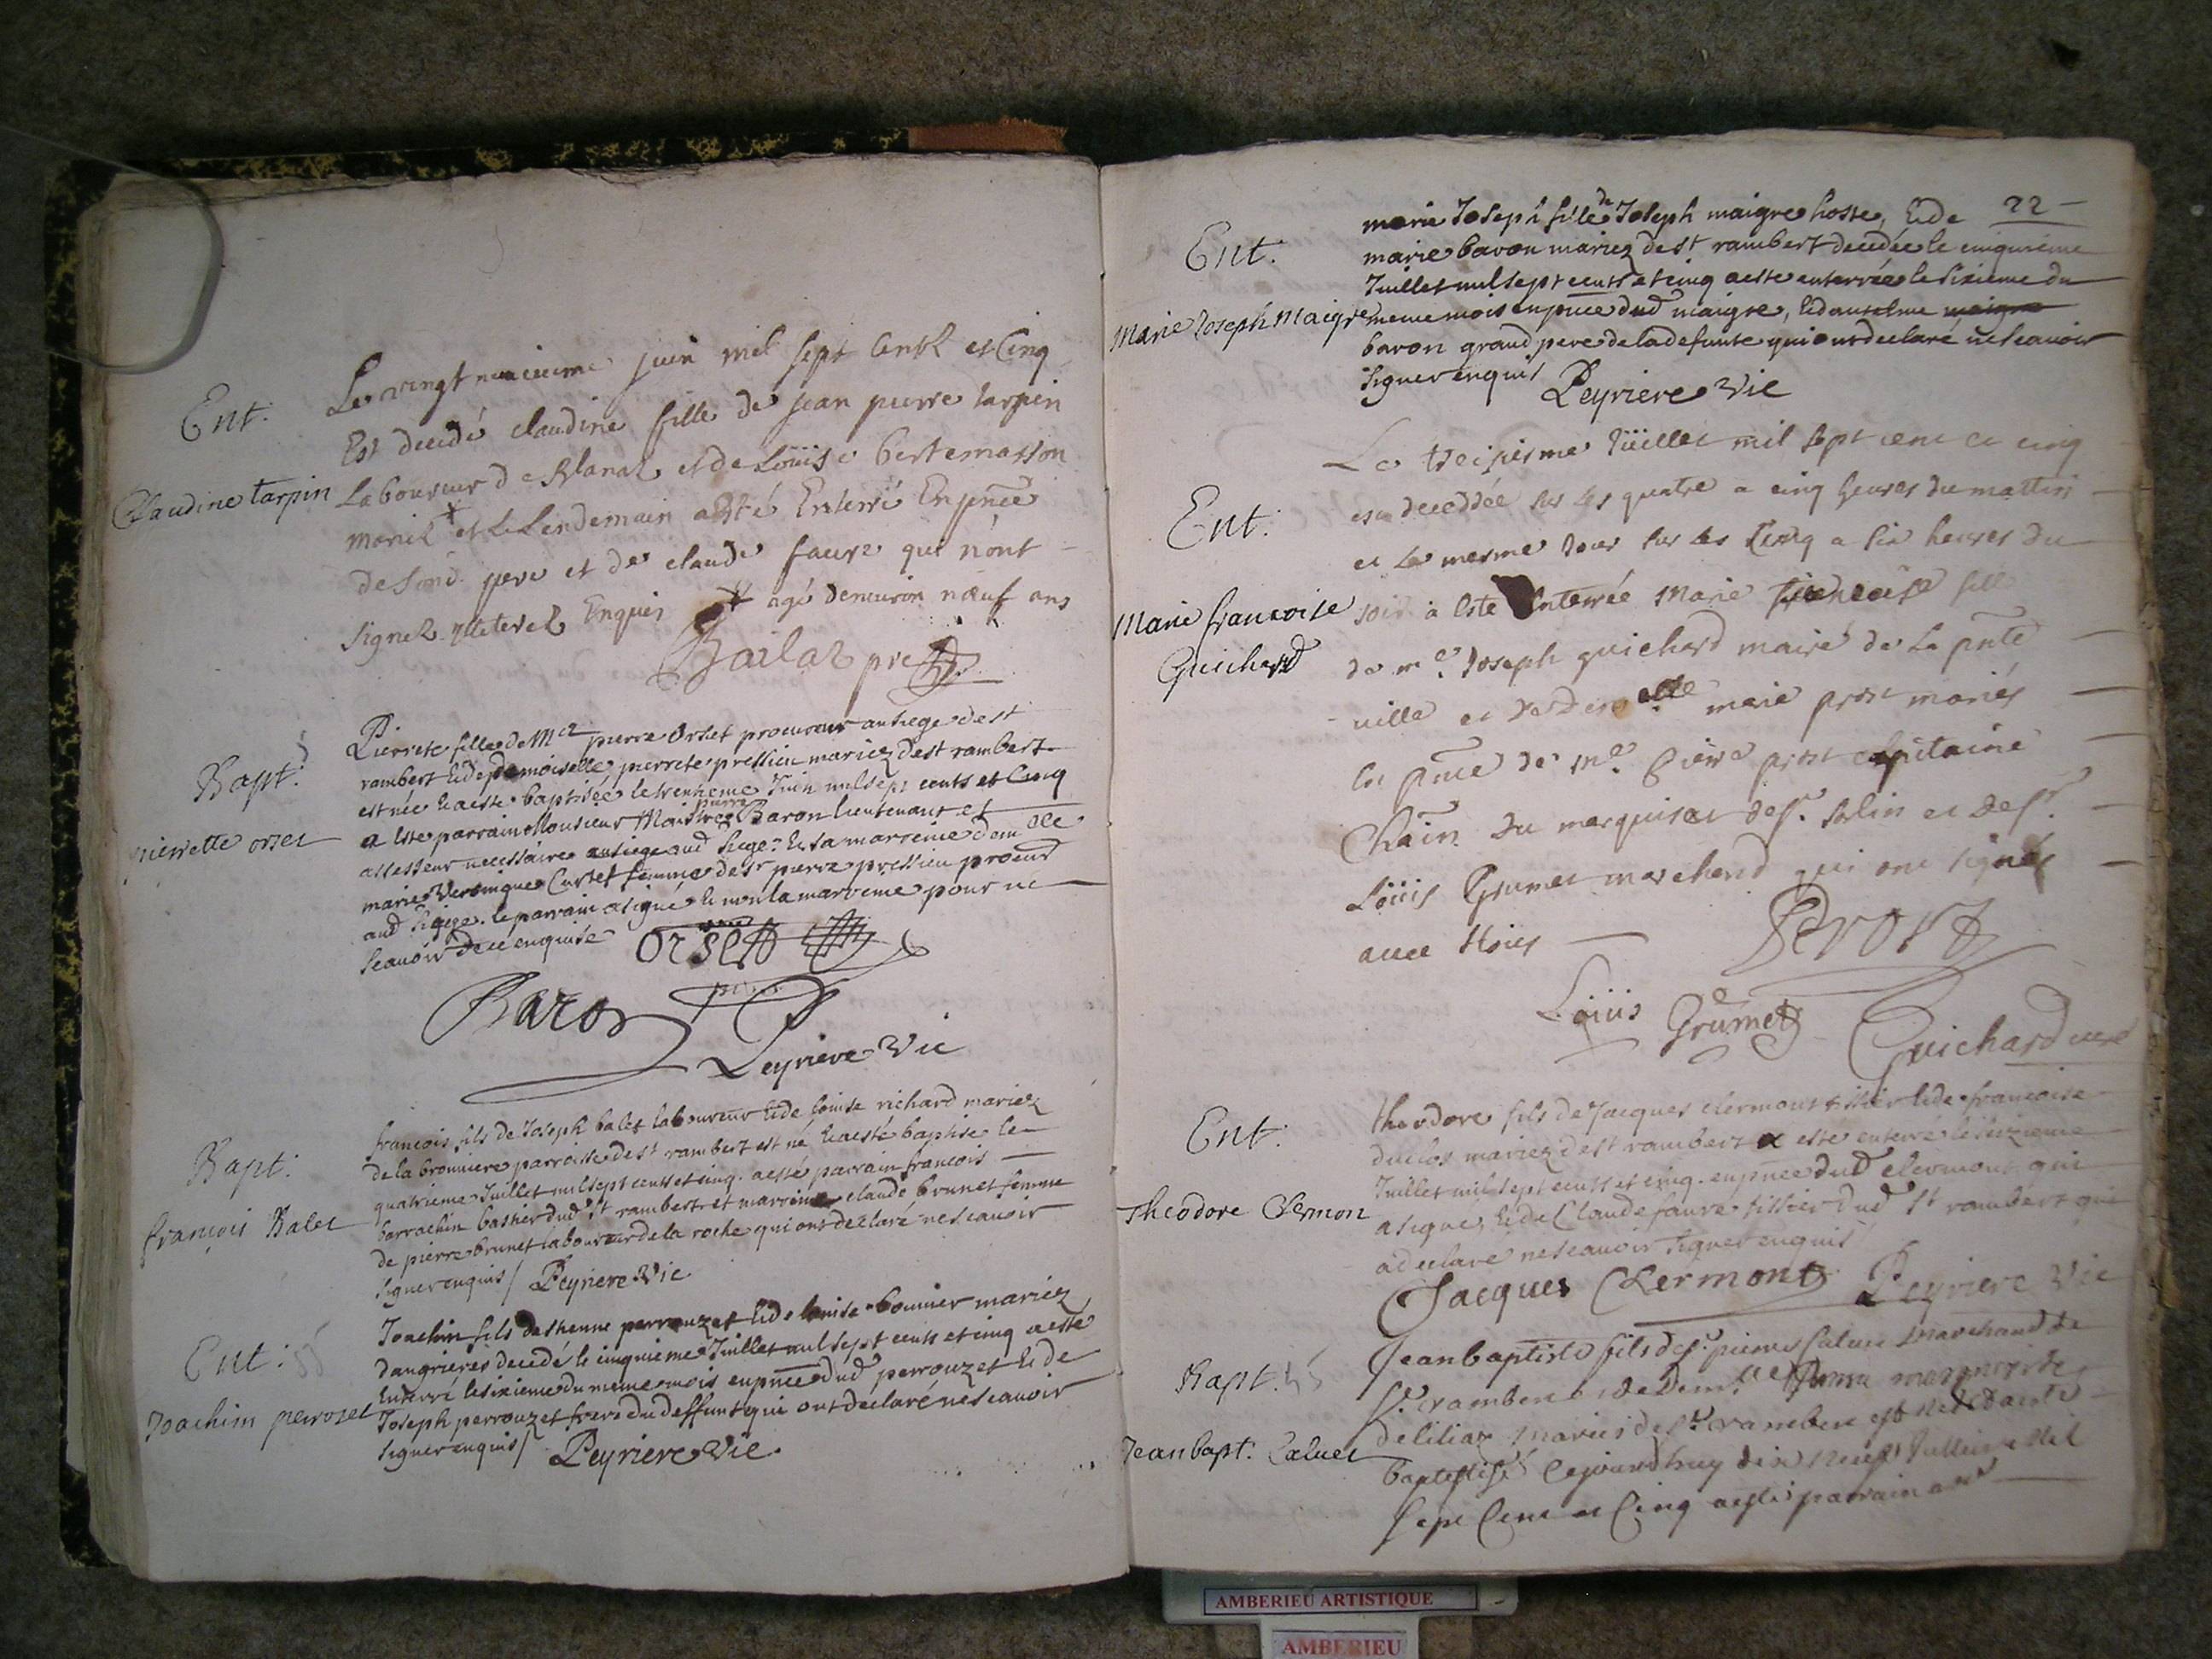 Ent.
Claudine tarpin
Le vingt neuvieme juin mil sept cents et cinq
Est decedé claudine fille de jean pierre tarpin
Laboureur de Blanaz et de Loüise bertemasson
mariez * et le Lendemain a esté Enterré En pnce
de sond. pere et de claude faure qui n'ont
signez Enquis * agé denviron nœuf ans
Bailat pre
Bapt.
pierrette orset
Pierrete fille de Mre pierre Orset procureur au siege de st
rambert & de demoiselle pierrete pressieu mariez de st rambert
est née & a este baptisée le trentieme Juin mil sept cents et cinq
a este parrain Monsieur Maistre pierre Baron lieutenant et
assesseur necessaire aud siege & sa marreine dom.lle
marie Veronique Curtet femme de sr pierre pressieu procurd
aud siege. le parrain a signé & non la marreine pour ne
scavoir de ce enquise
Orset
Baron
Peyriere Vic
Bapt.
françois Balet
francois fils de Joseph balet laboureur & de louise richard mariez
de la bronniere parroisse de st rambert est né & a esté baptisé le
quatrieme Juillet mil sept cents et cinq. a esté parrain francois
barrachin bastier dud st rambert et marreine claude brunet femme
de pierre brunet laboureur de la roche qui ont declaré ne scavoir
signer enquis / Peyriere Vic
Ent:
Joachim perrozet
Joachin fils destienne perrouzet & de louise bonnier mariez
dangrieres decedé le cinquieme Juillet mil sept cents et cinq a esté
Enterré le sixieme du meme mois en pnce dud perrouzet & de
Joseph perrouzet frere du deffunt qui ont declaré ne scavoir
signer enquis / Peyriere Vic.
22
Ent.
Marie Joseph Maigre
marie Joseph fille de Joseph maigre hoste, & de
marie bavon mariez de st rambert decedée le cinquieme
Juillet mil sept cents et cinq a este enterrée le sixieme du
meme mois en pnce dud maigre, & danselme maigre
bavon grand pere de la defunte qui ont declaré ne scavoir
signer enquis
Peyriere Vic
Ent.
Marie francoise
Guichard
Le treiziesme Jüillet mil sept cent et cinq
est decedée sur les quatre a cinq heures du mattin
et le mesme Jour sur les Cinq a six heures du
soir a este Enterrée Marie francoise fille
de me. Joseph guichard maire de La pnte
ville et de demoiselle marie prost mariés
En pnce de me. pierre prost capitaine
Chain du marquisat de st. Sorlin et de sr.
Loüis Grumet marchand qui ont signés
avec
Perost
Loüis Grumet
Guichard
Ent.
Theodore Clermon
theodore fils de Jacques clermont tissier & de francoise
duclos mariez de st rambert a este enterré le seizieme
Juillet mil sept cents et cinq. en pnce dud clermont qui
a signé, & de Claude faure tissier dud st rambert qui
a declaré ne scavoir signer enquis
Jacques Clermont Peyriere Vic
Bapt.
Jean bapt. Caluet
Jean baptiste fils de sr. pierre Caluet Marchand de
st. rambert & de Dem.lle marguerite
deliliaz mariés de st. rambert est né & a esté
baptistisé Cejourdhuy dix neuf Juillet mil
sept Cent et Cinq a esté parrain
AMBERIEU ARTISTIQUE
AMBERIEU